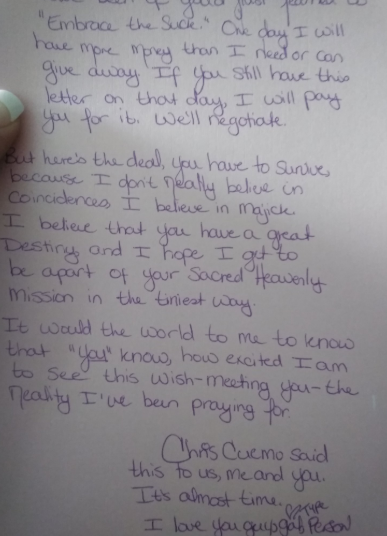 "Embrace the Suck." One day I will
have more money than I need or can
give away. If you still have this
letter on that day, I will pay
you for it. We'll negotiate.
But here's the deal, you have to survive,
because I don't really believe in
coincidences, I believe in Majick.
I believe that you have a great
Destiny, and I hope I get to
be apart of your Sacred Heavenly
mission in the tiniest way.
It would the world to me to know
that "you" know, how excited I am
to see this wish-meeting you-the
reality I've been praying for.
Chris Cuemo said
this to us, me and you.
It's almost time.
type
I love you guys Person